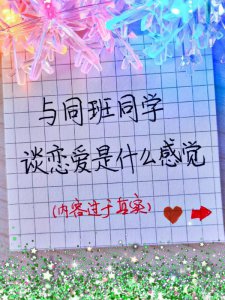 与同班同学
谈恋爱是什么感觉
(内容过于真实)